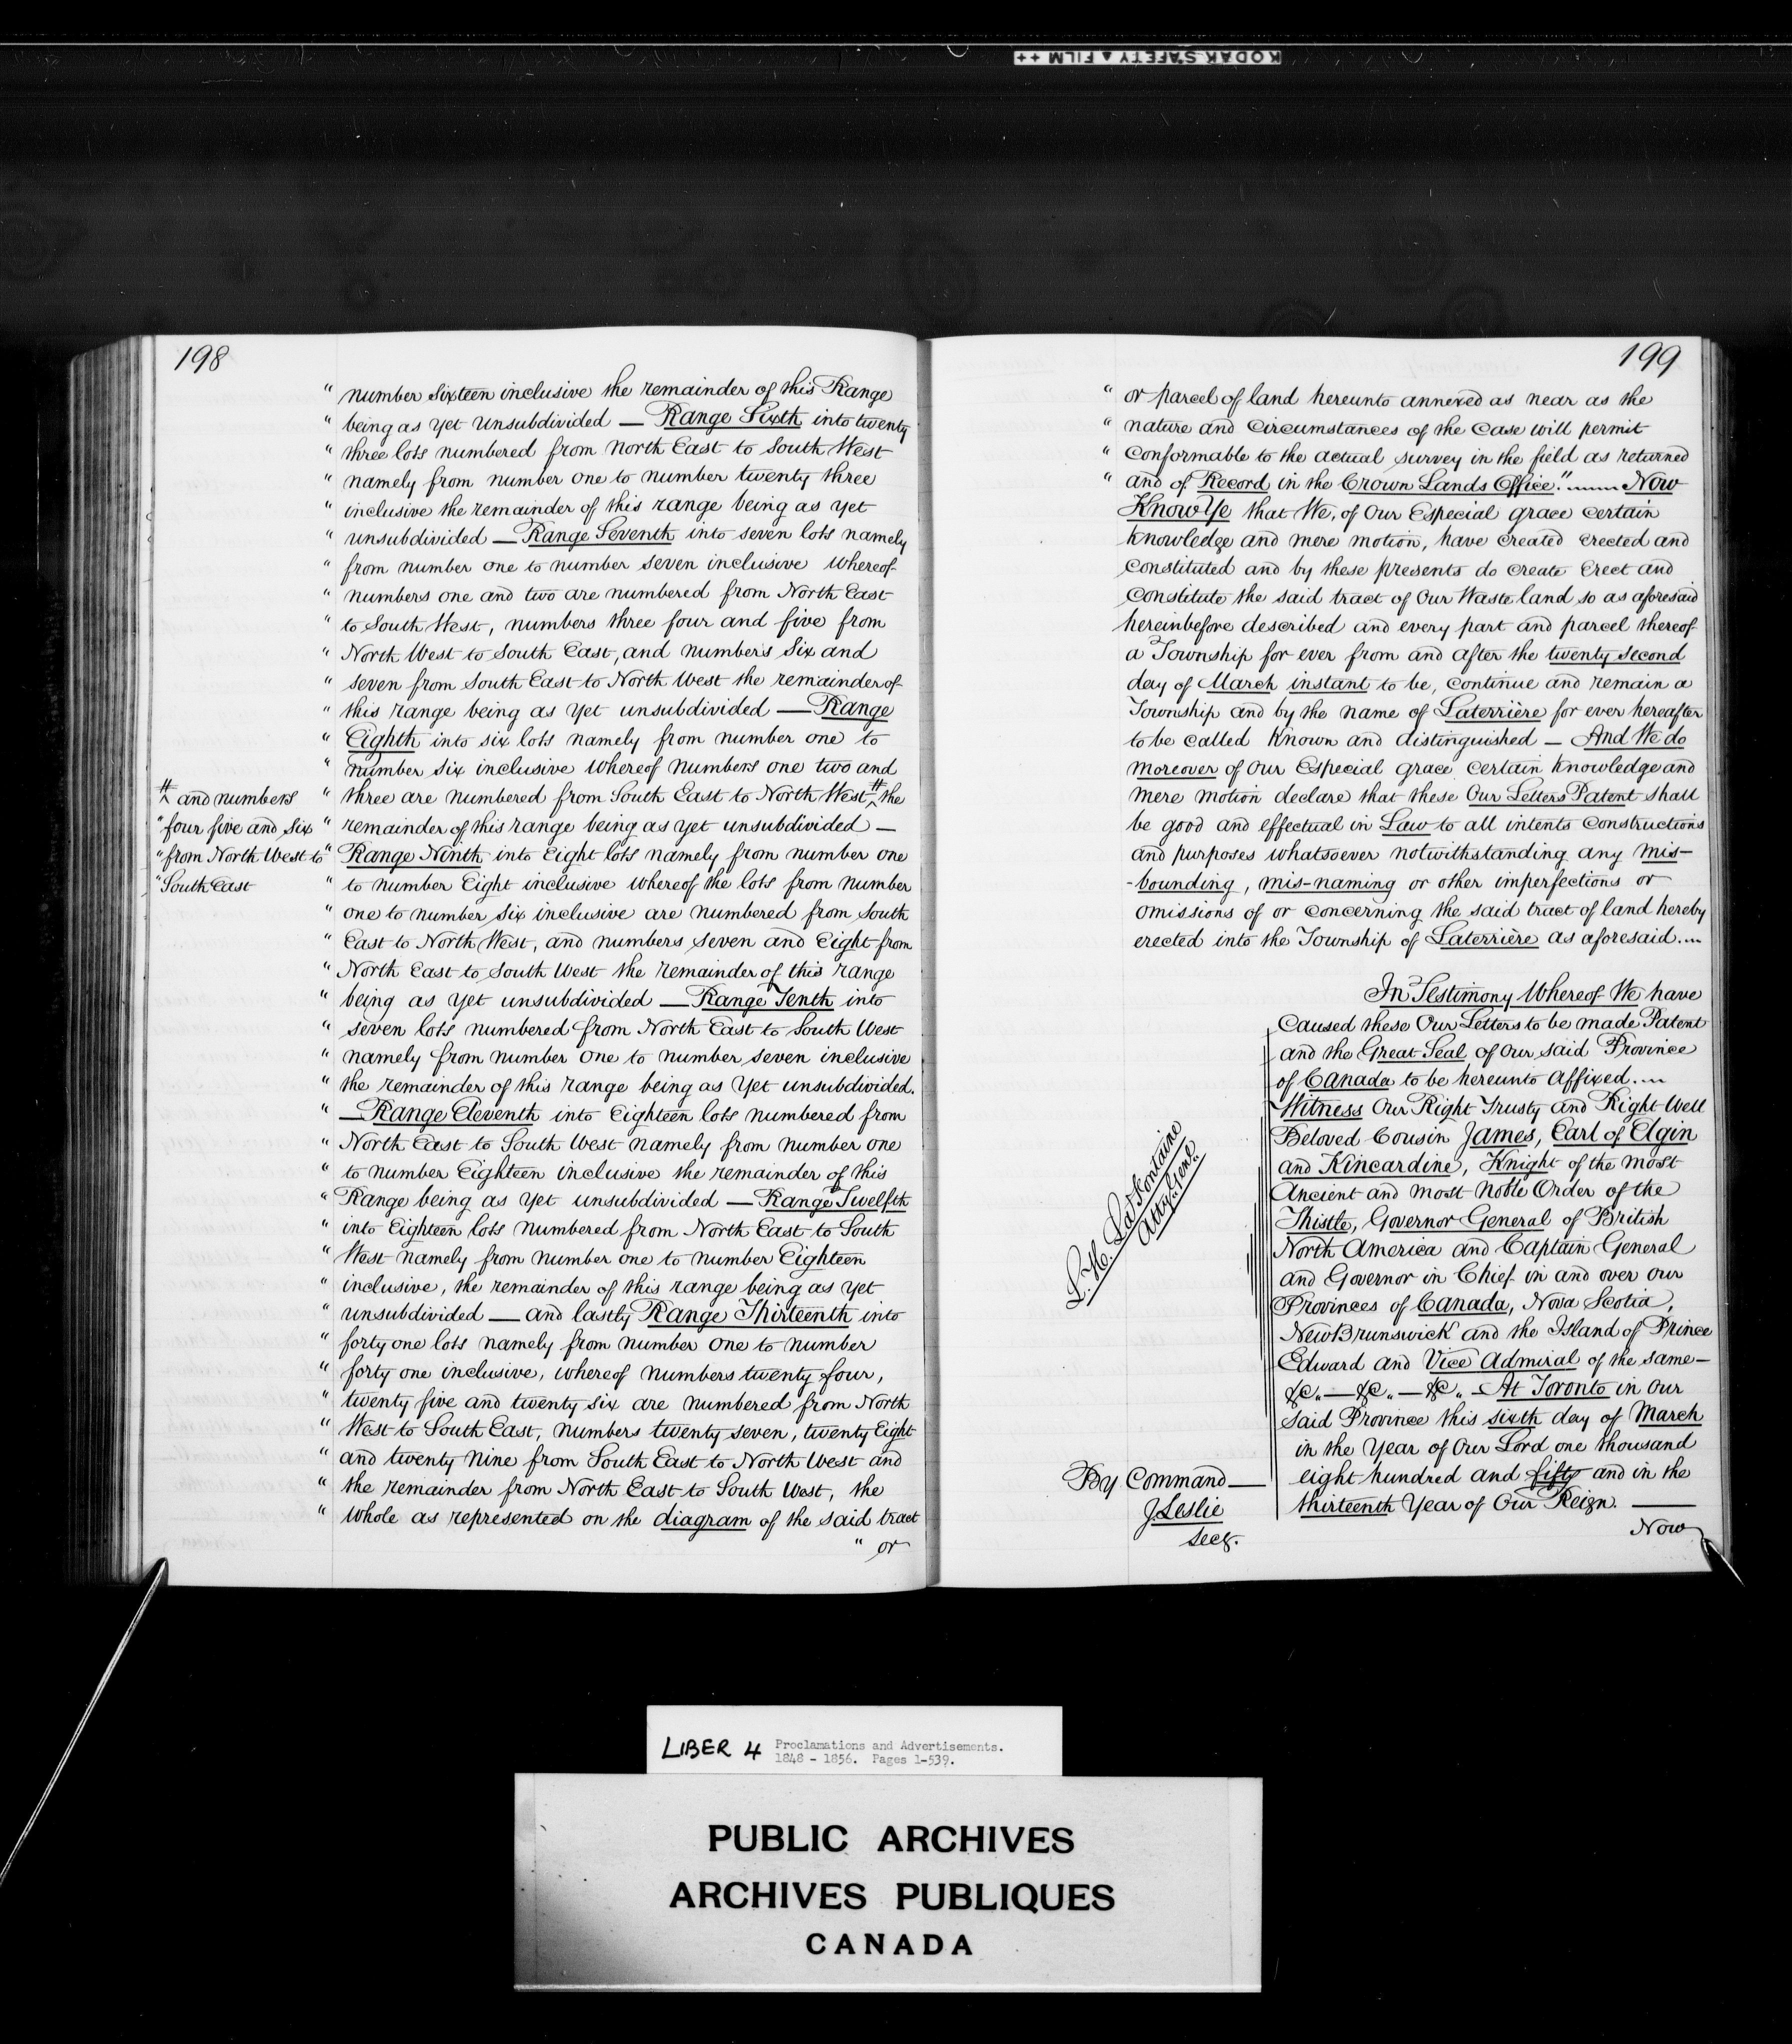 KODAK SAFETY ▲ FILM ++
198
" number sixteen inclusive the remainder of this Range
" being as yet unsubdivided — Range Sixth into twenty
" three lots numbered from North East to South West
" namely from number one to number twenty three
" inclusive the remainder of this range being as yet
" unsubdivided — Range Seventh into seven lots namely
" from number one to number seven inclusive whereof
" numbers one and two are numbered from North East
" to South West, numbers three four and five from
" North West to South East, and numbers six and
" seven from South East to North West the remainder of
" this range being as yet unsubdivided — Range
" Eighth into six lots namely from number one to
" number six inclusive whereof numbers one two and
" three are numbered from South East to North West # the
# and numbers
" four five and six
" from North West to
" South East
" remainder of this range being as yet unsubdivided —
" Range Ninth into Eight lots namely from number one
" to number Eight inclusive whereof the lots from number
" one to number six inclusive are numbered from South
" East to North West, and numbers seven and Eight from
" North East to South West the remainder of this range
" being as yet unsubdivided — Range Tenth into
" seven lots numbered from North East to South West
" namely from number one to number seven inclusive
" the remainder of this range being as yet unsubdivided.
" — Range Eleventh into Eighteen lots numbered from
" North East to South West namely from number one
" to number Eighteen inclusive the remainder of this
" Range being as yet unsubdivided — Range Twelfth
" into Eighteen lots numbered from North East to South
" West namely from number one to number Eighteen
" inclusive, the remainder of this range being as yet
" unsubdivided — and lastly Range Thirteenth into
" forty one lots namely from number one to number
" forty one inclusive, whereof numbers twenty four,
" twenty five and twenty six are numbered from North
" West to South East, numbers twenty seven, twenty Eight
" and twenty nine from South East to North West and
" the remainder from North East to South West, the
" whole as represented on the diagram of the said tract
" or
199
" or parcel of land hereunto annexed as near as the
" nature and circumstances of the case will permit
" conformable to the actual survey in the field as returned
" and of Record in the Crown Lands Office." Now
Know Ye that We, of Our Especial grace certain
knowledge and mere motion, have created erected and
constituted and by these presents do create Erect and
Constitute the said tract of Our Waste land so as aforesaid
hereinbefore described and every part and parcel thereof
a Township for ever from and after the twenty second
day of March instant to be, continue and remain a
Township and by the name of Laterrière for ever hereafter
to be called known and distinguished — And We do
moreover of Our Especial grace certain knowledge and
mere motion declare that these Our Letters Patent shall
be good and effectual in Law to all intents constructions
and purposes whatsoever notwithstanding any mis-
-bounding, mis-naming or other imperfections or
omissions of or concerning the said tract of land hereby
erected into the Township of Laterrière as aforesaid....
In Testimony Whereof We have
Caused these Our Letters to be made Patent
and the Great Seal of Our said Province
of Canada to be hereunto affixed....
Witness Our Right Trusty and Right Well
Beloved Cousin James, Earl of Elgin
and Kincardine, Knight of the most
Ancient and most Noble Order of the
Thistle, Governor General of British
North America and Captain General
and Governor in Chief in and over our
Provinces of Canada, Nova Scotia,
New Brunswick and the Island of Prince
Edward and Vice Admiral of the same —
&c. — &c. — &c. — At Toronto in Our
said Province this sixth day of March
in the Year of Our Lord one thousand
eight hundred and fifty and in the
thirteenth Year of Our Reign. —
L. H. LaFontaine
Atty. Genl.
By Command —
J. Leslie
Secy.
Now
LIBER 4 Proclamations and Advertisements.
1848 - 1856. Pages 1-539.
PUBLIC ARCHIVES
ARCHIVES PUBLIQUES
CANADA